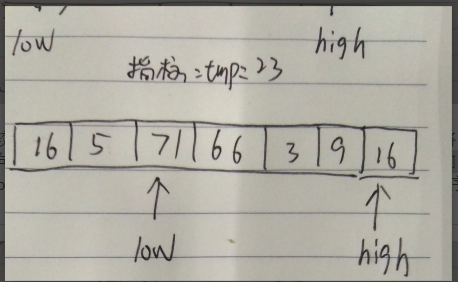 low high
指标=tmp=23
16 5 71 66 3 9 16
low high